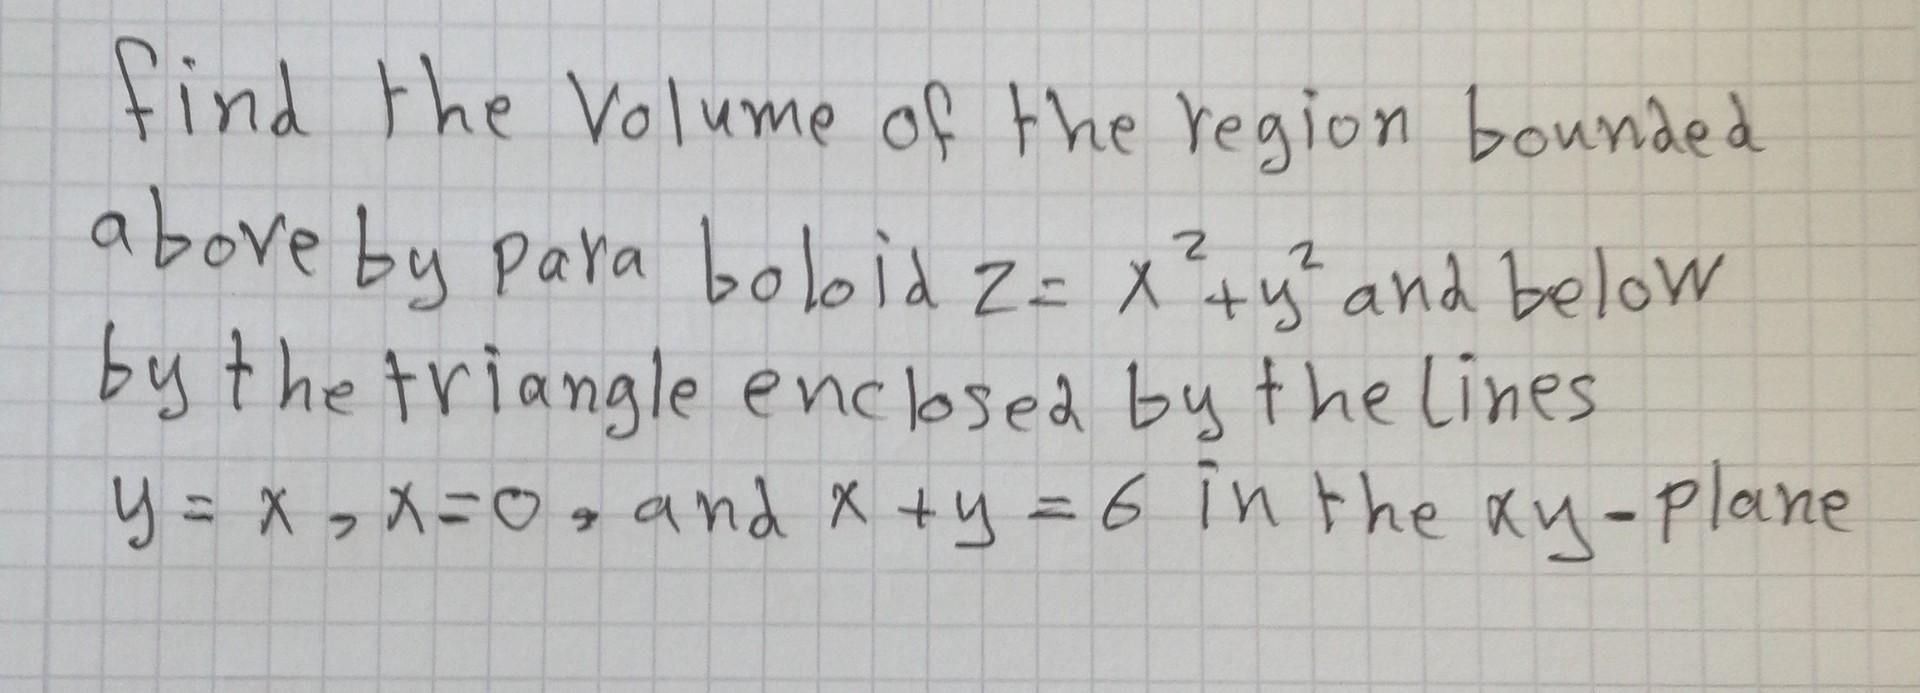 find the Volume of the region bounded
above by para boloid z = x²+y² and below
by the triangle enclosed by the lines
y = x, x=0, and x + y = 6 in the xy-plane